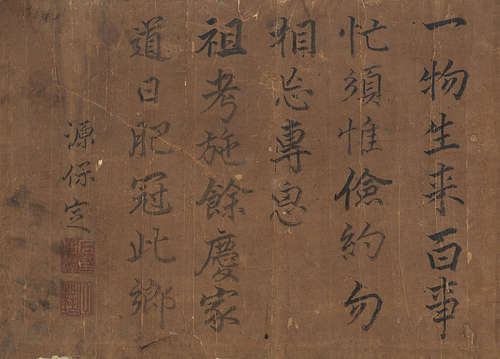 一物生来百事
忙須惟儉約勿
相忘專息
祖考施餘慶家
道日肥冠此鄉
源保定